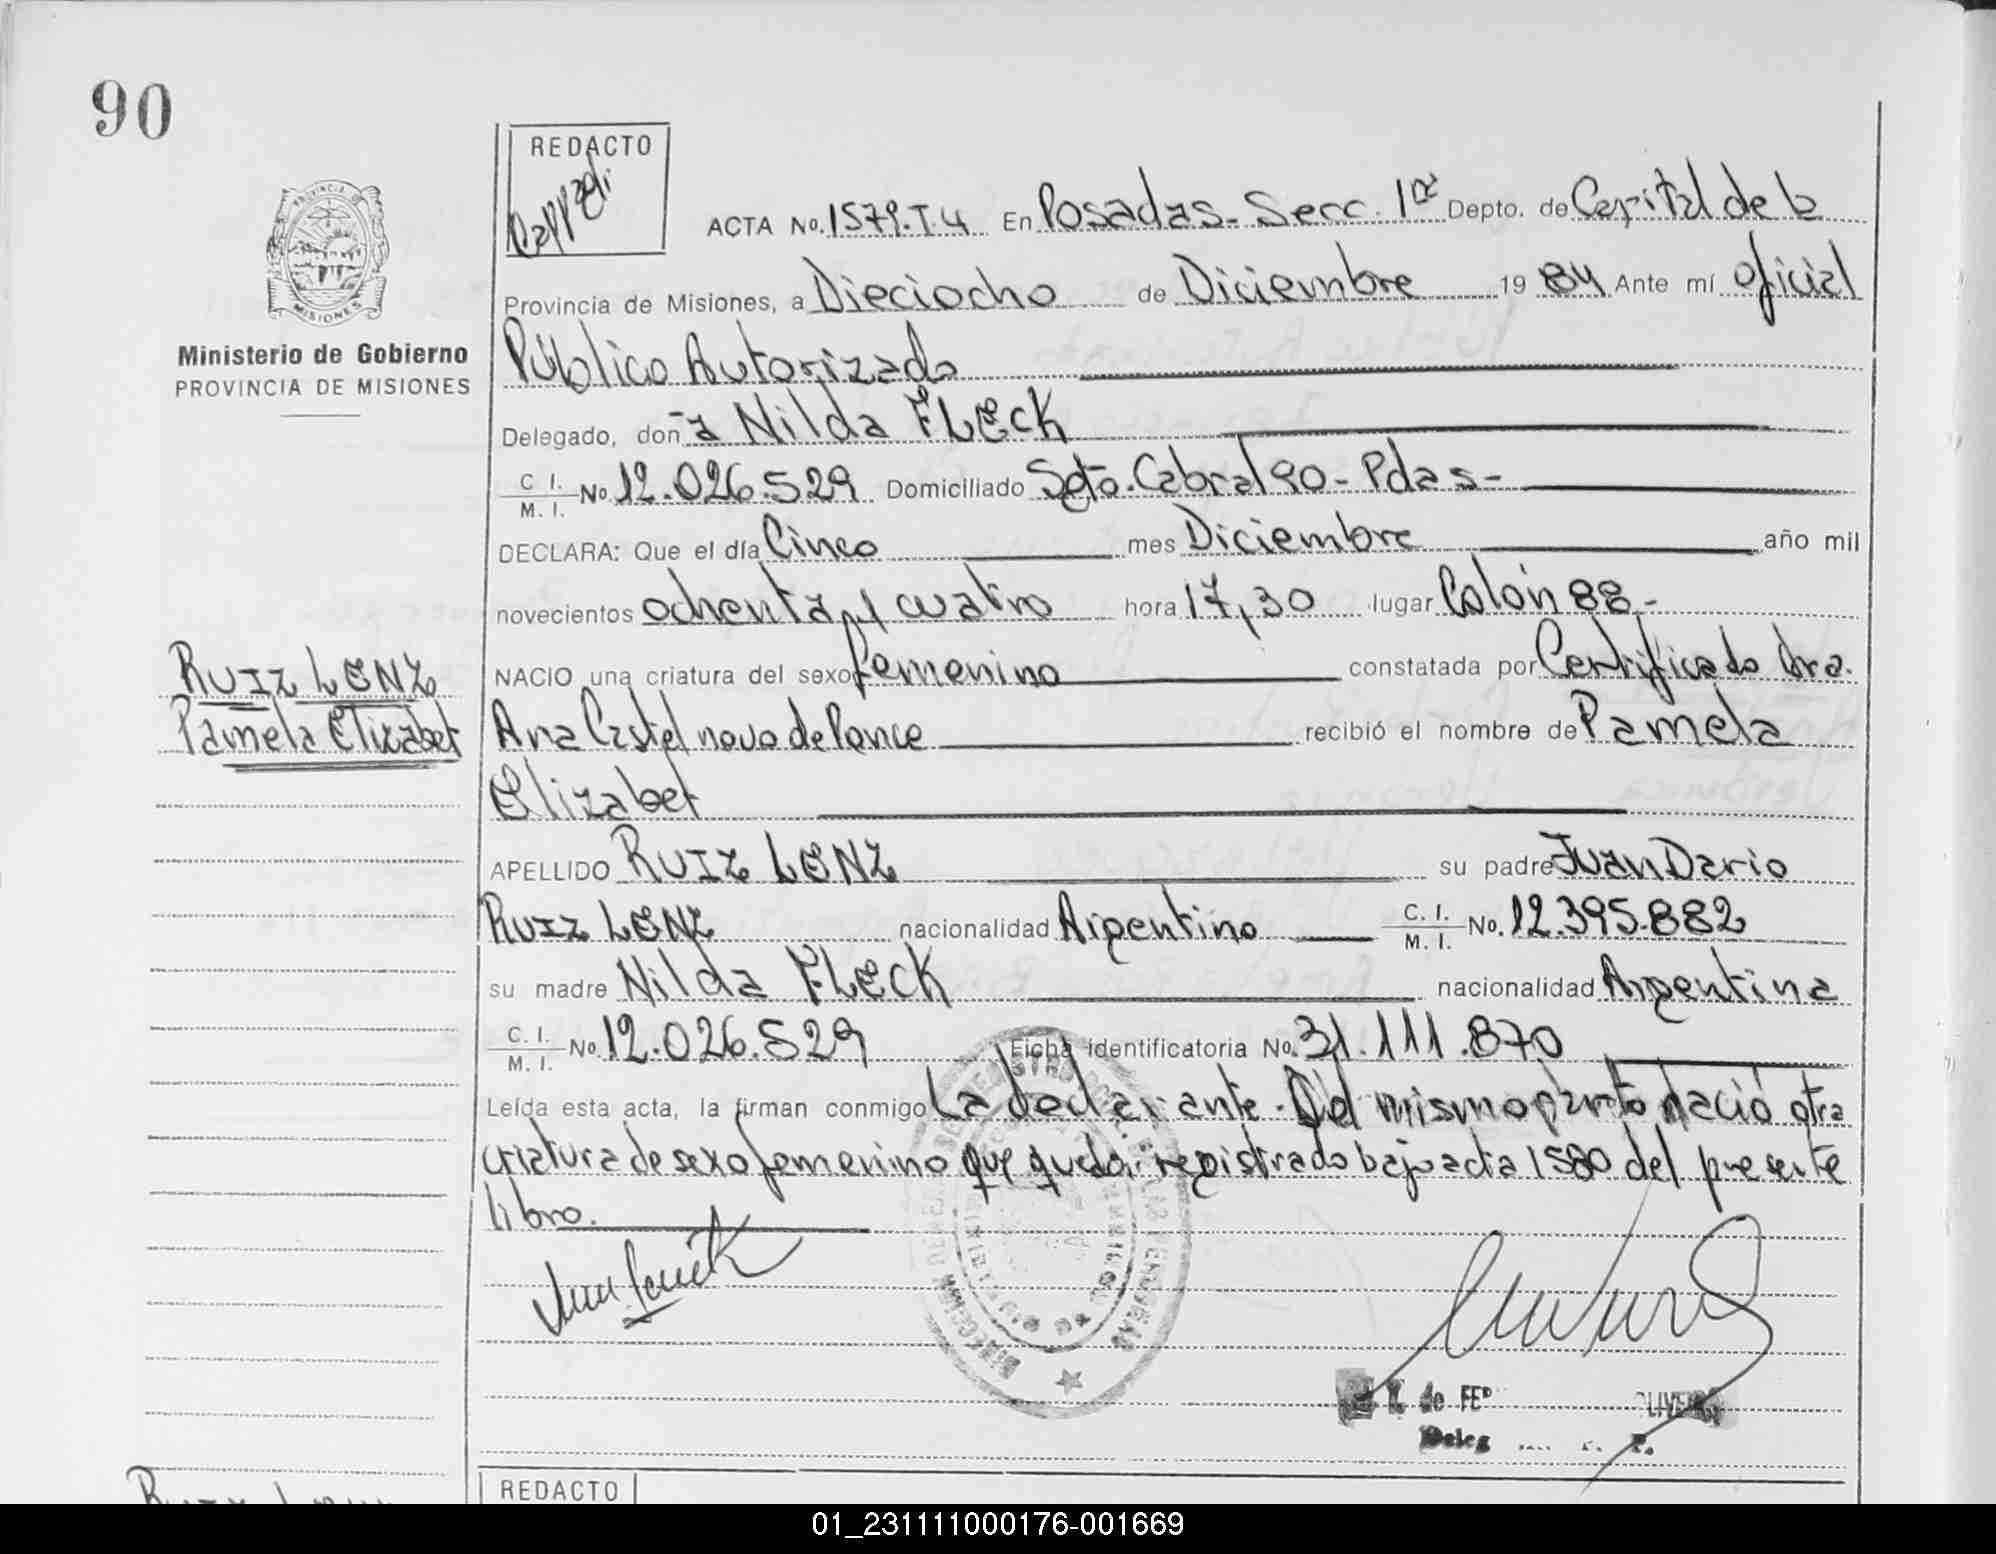 90
REDACTO
ACTA No. 1579.T4 En Posadas-Secc. 1ra Depto. de Capital de la
Provincia de Misiones, a Dieciocho de Diciembre 1984 Ante mí Oficial
PROVINCIA
MISIONES
Ministerio de Gobierno
PROVINCIA DE MISIONES
Público Autorizado
Delegado, don-a Nilda FLECK
C. I. M. I. No. 12.026.529 Domiciliado Sgto. Cabral 90- Pdas-
DECLARA: Que el día Cinco mes Diciembre año mil
novecientos ochenta y cuatro hora 17,30 lugar Colón 88-
RUIZ LENZ
Pamela Elizabet
NACIO una criatura del sexo femenino constatada por Certificado Dra.
Ana Castelnovo de Ponce recibió el nombre de Pamela
Elizabet
APELLIDO RUIZ LENZ su padre Juan Dario
RUIZ LENZ nacionalidad Argentino C. I. M. I. No. 12.395.882
su madre Nilda FLECK nacionalidad Argentina
C. I. M. I. No. 12.026.529 Ficha identificatoria No. 31.111.870
Leída esta acta, la firman conmigo La declarante. Del mismo parto nació otra
criatura de sexo femenino que queda registrado bajo acta 1580 del presente
libro.
de
REDACTO
01_231111000176-001669